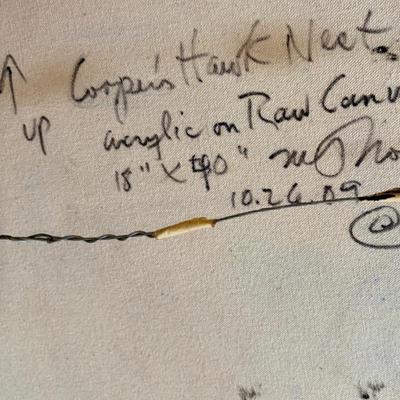 Cooper's Hawk Nest
↑
up
acrylic on Raw Canv
18" X 40"
10.26.09